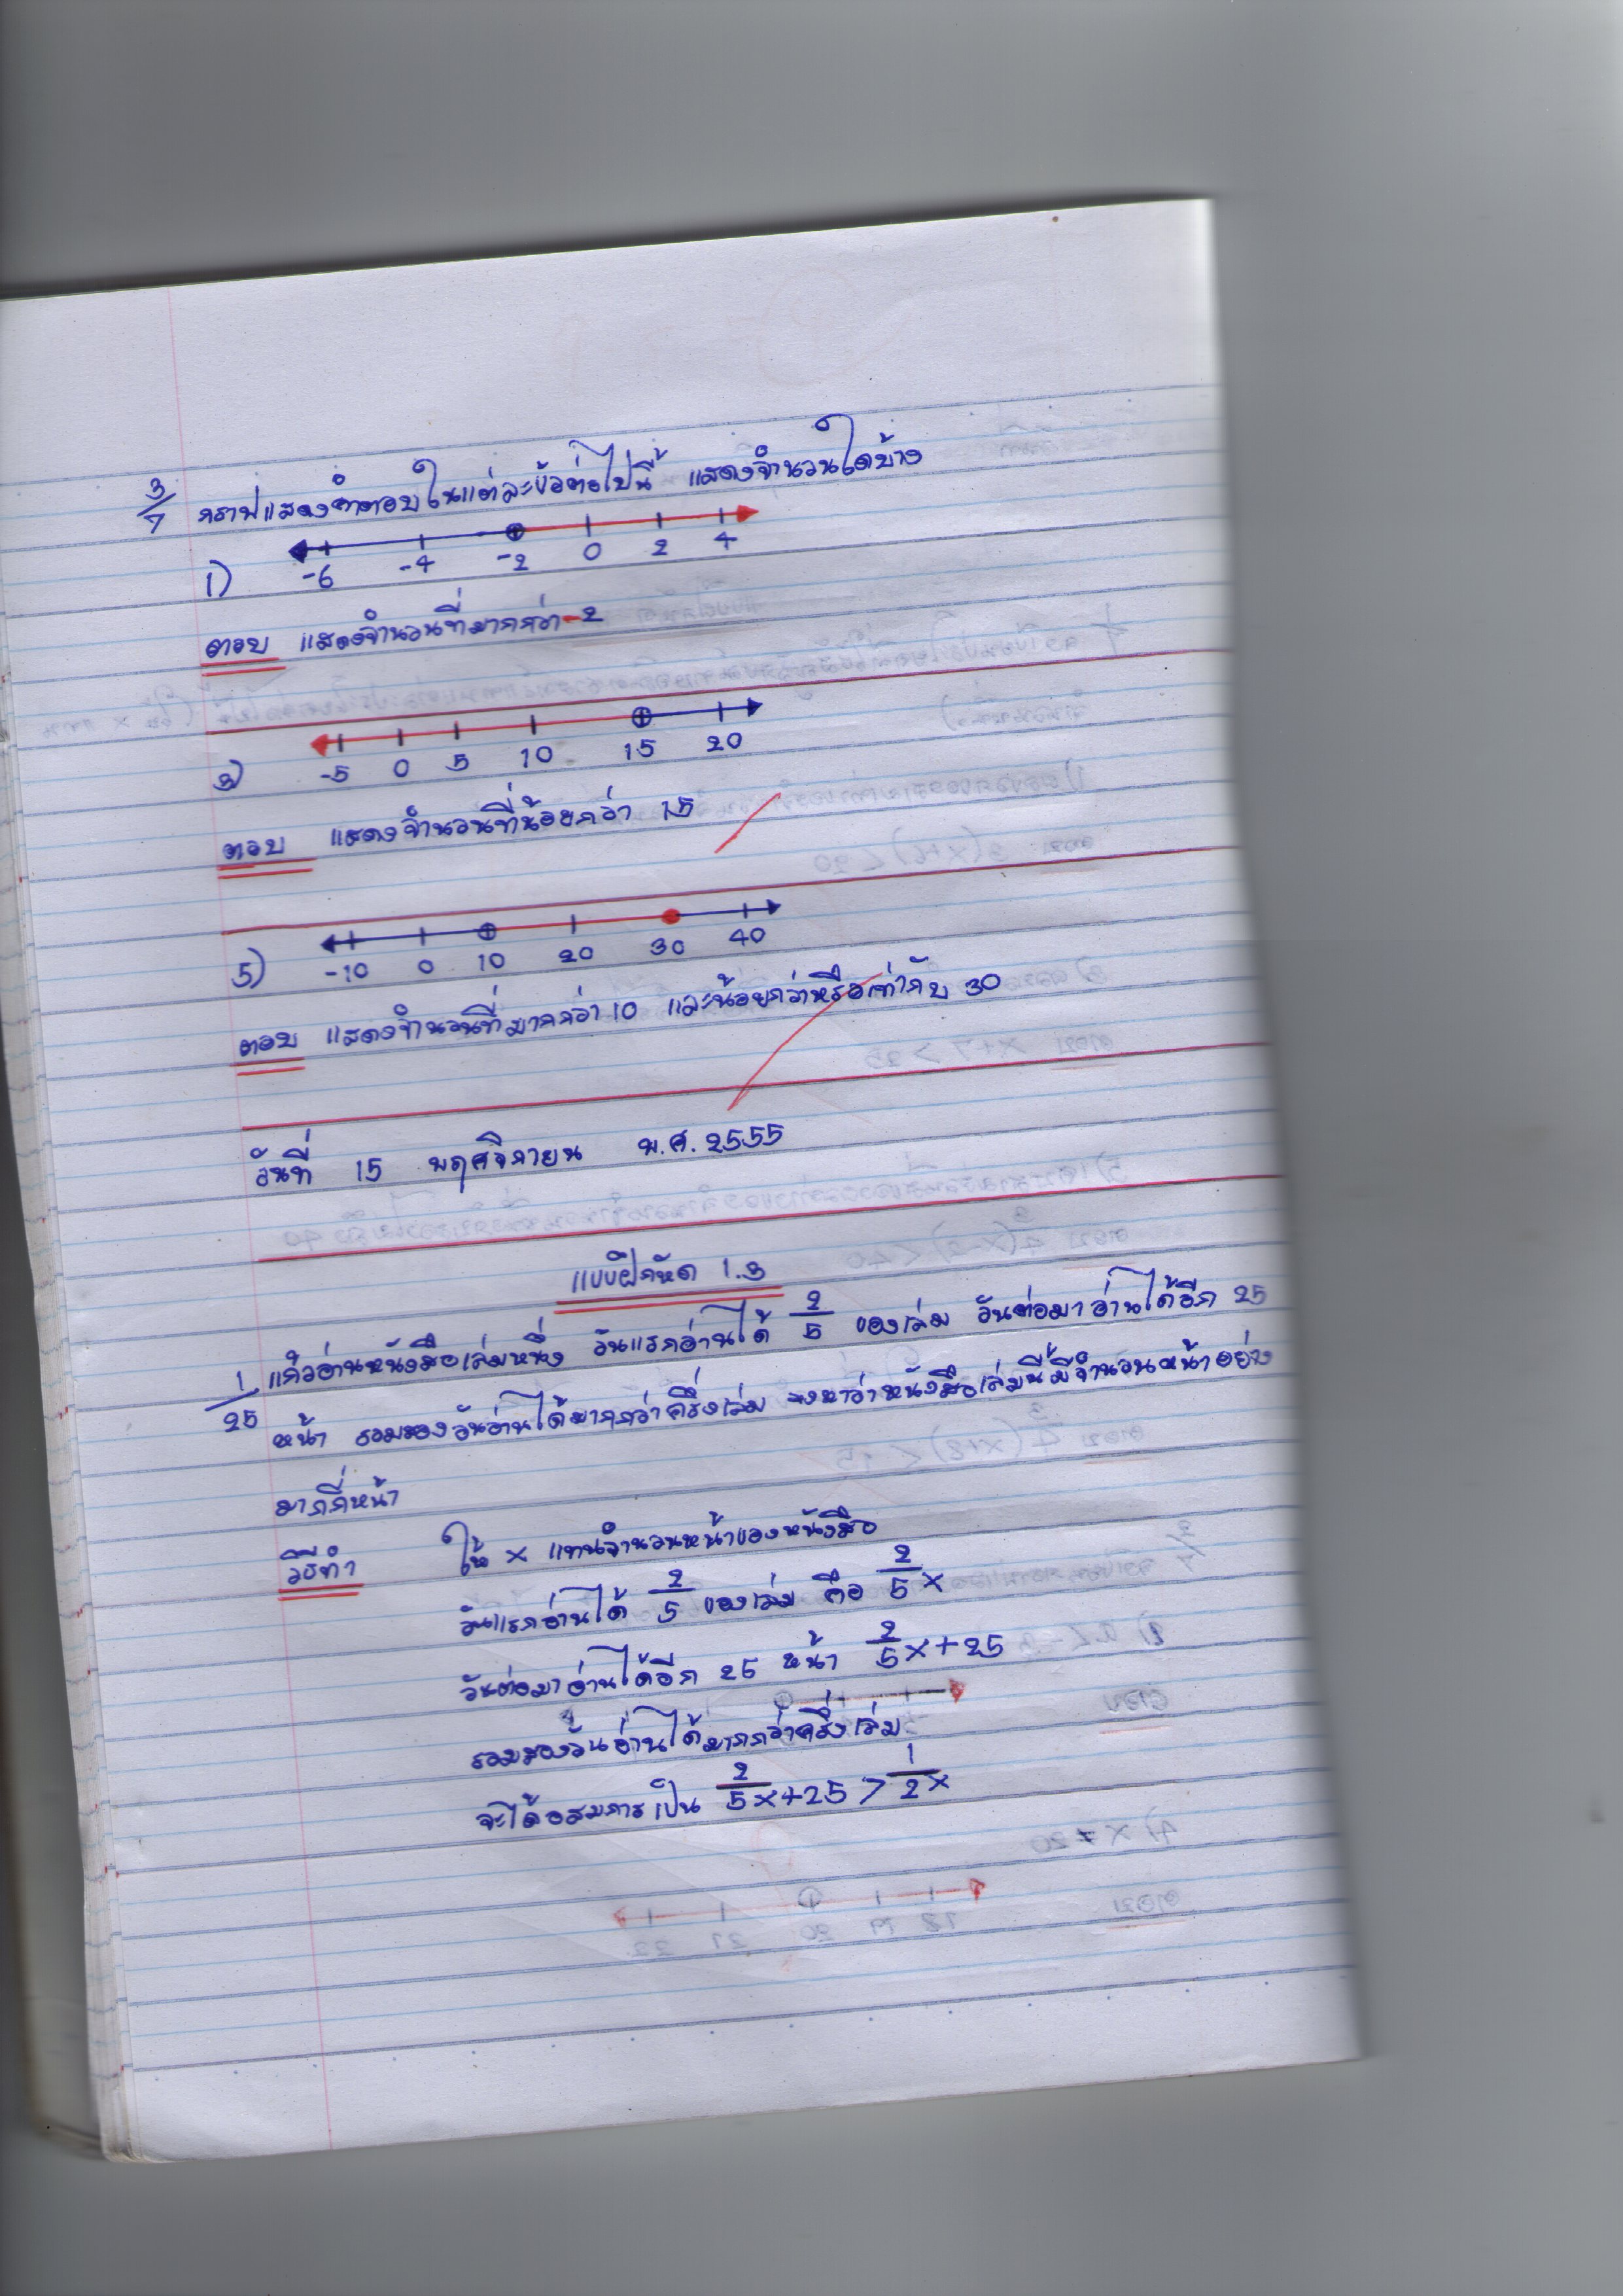 3/7 กราฟแสดงคำตอบในแต่ละข้อต่อไปนี้ แสดงจำนวนใดบ้าง
1) -6 -4 -2 0 2 4
ตอบ แสดงจำนวนที่มากกว่า -2
3) -5 0 5 10 15 20
ตอบ แสดงจำนวนที่น้อยกว่า 15
5) -10 0 10 20 30 40
ตอบ แสดงจำนวนที่มากกว่า 10 และน้อยกว่าหรือเท่ากับ 30
วันที่ 15 พฤศจิกายน พ.ศ. 2555
แบบฝึกหัด 1.3
1/25 แก้วอ่านหนังสือเล่มหนึ่ง วันแรกอ่านได้ 2/5 ของเล่ม วันต่อมาอ่านได้อีก 25
หน้า รวมสองวันอ่านได้มากกว่าครึ่งเล่ม จงหาว่าหนังสือเล่มนี้มีจำนวนหน้าอย่าง
มากกี่หน้า
วิธีทำ ให้ x แทนจำนวนหน้าของหนังสือ
วันแรกอ่านได้ 2/5 ของเล่ม คือ 2/5 x
วันต่อมาอ่านได้อีก 25 หน้า 2/5 x + 25
รวมสองวันอ่านได้มากกว่าครึ่งเล่ม
จะได้อสมการเป็น 2/5 x + 25 > 1/2 x